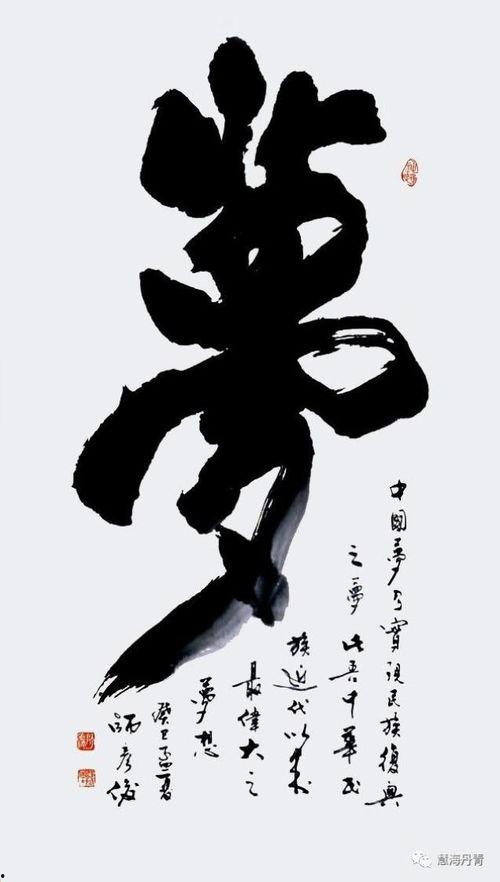 夢
中國夢乃實現民族復興
之夢此吾中華民
族近代以來
最偉大之
夢想
癸巳孟春
師彦俊
慧海丹青